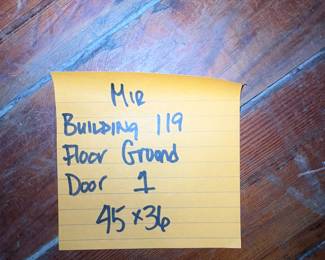 Mir
Building 119
Floor Ground
Door 1
45x36